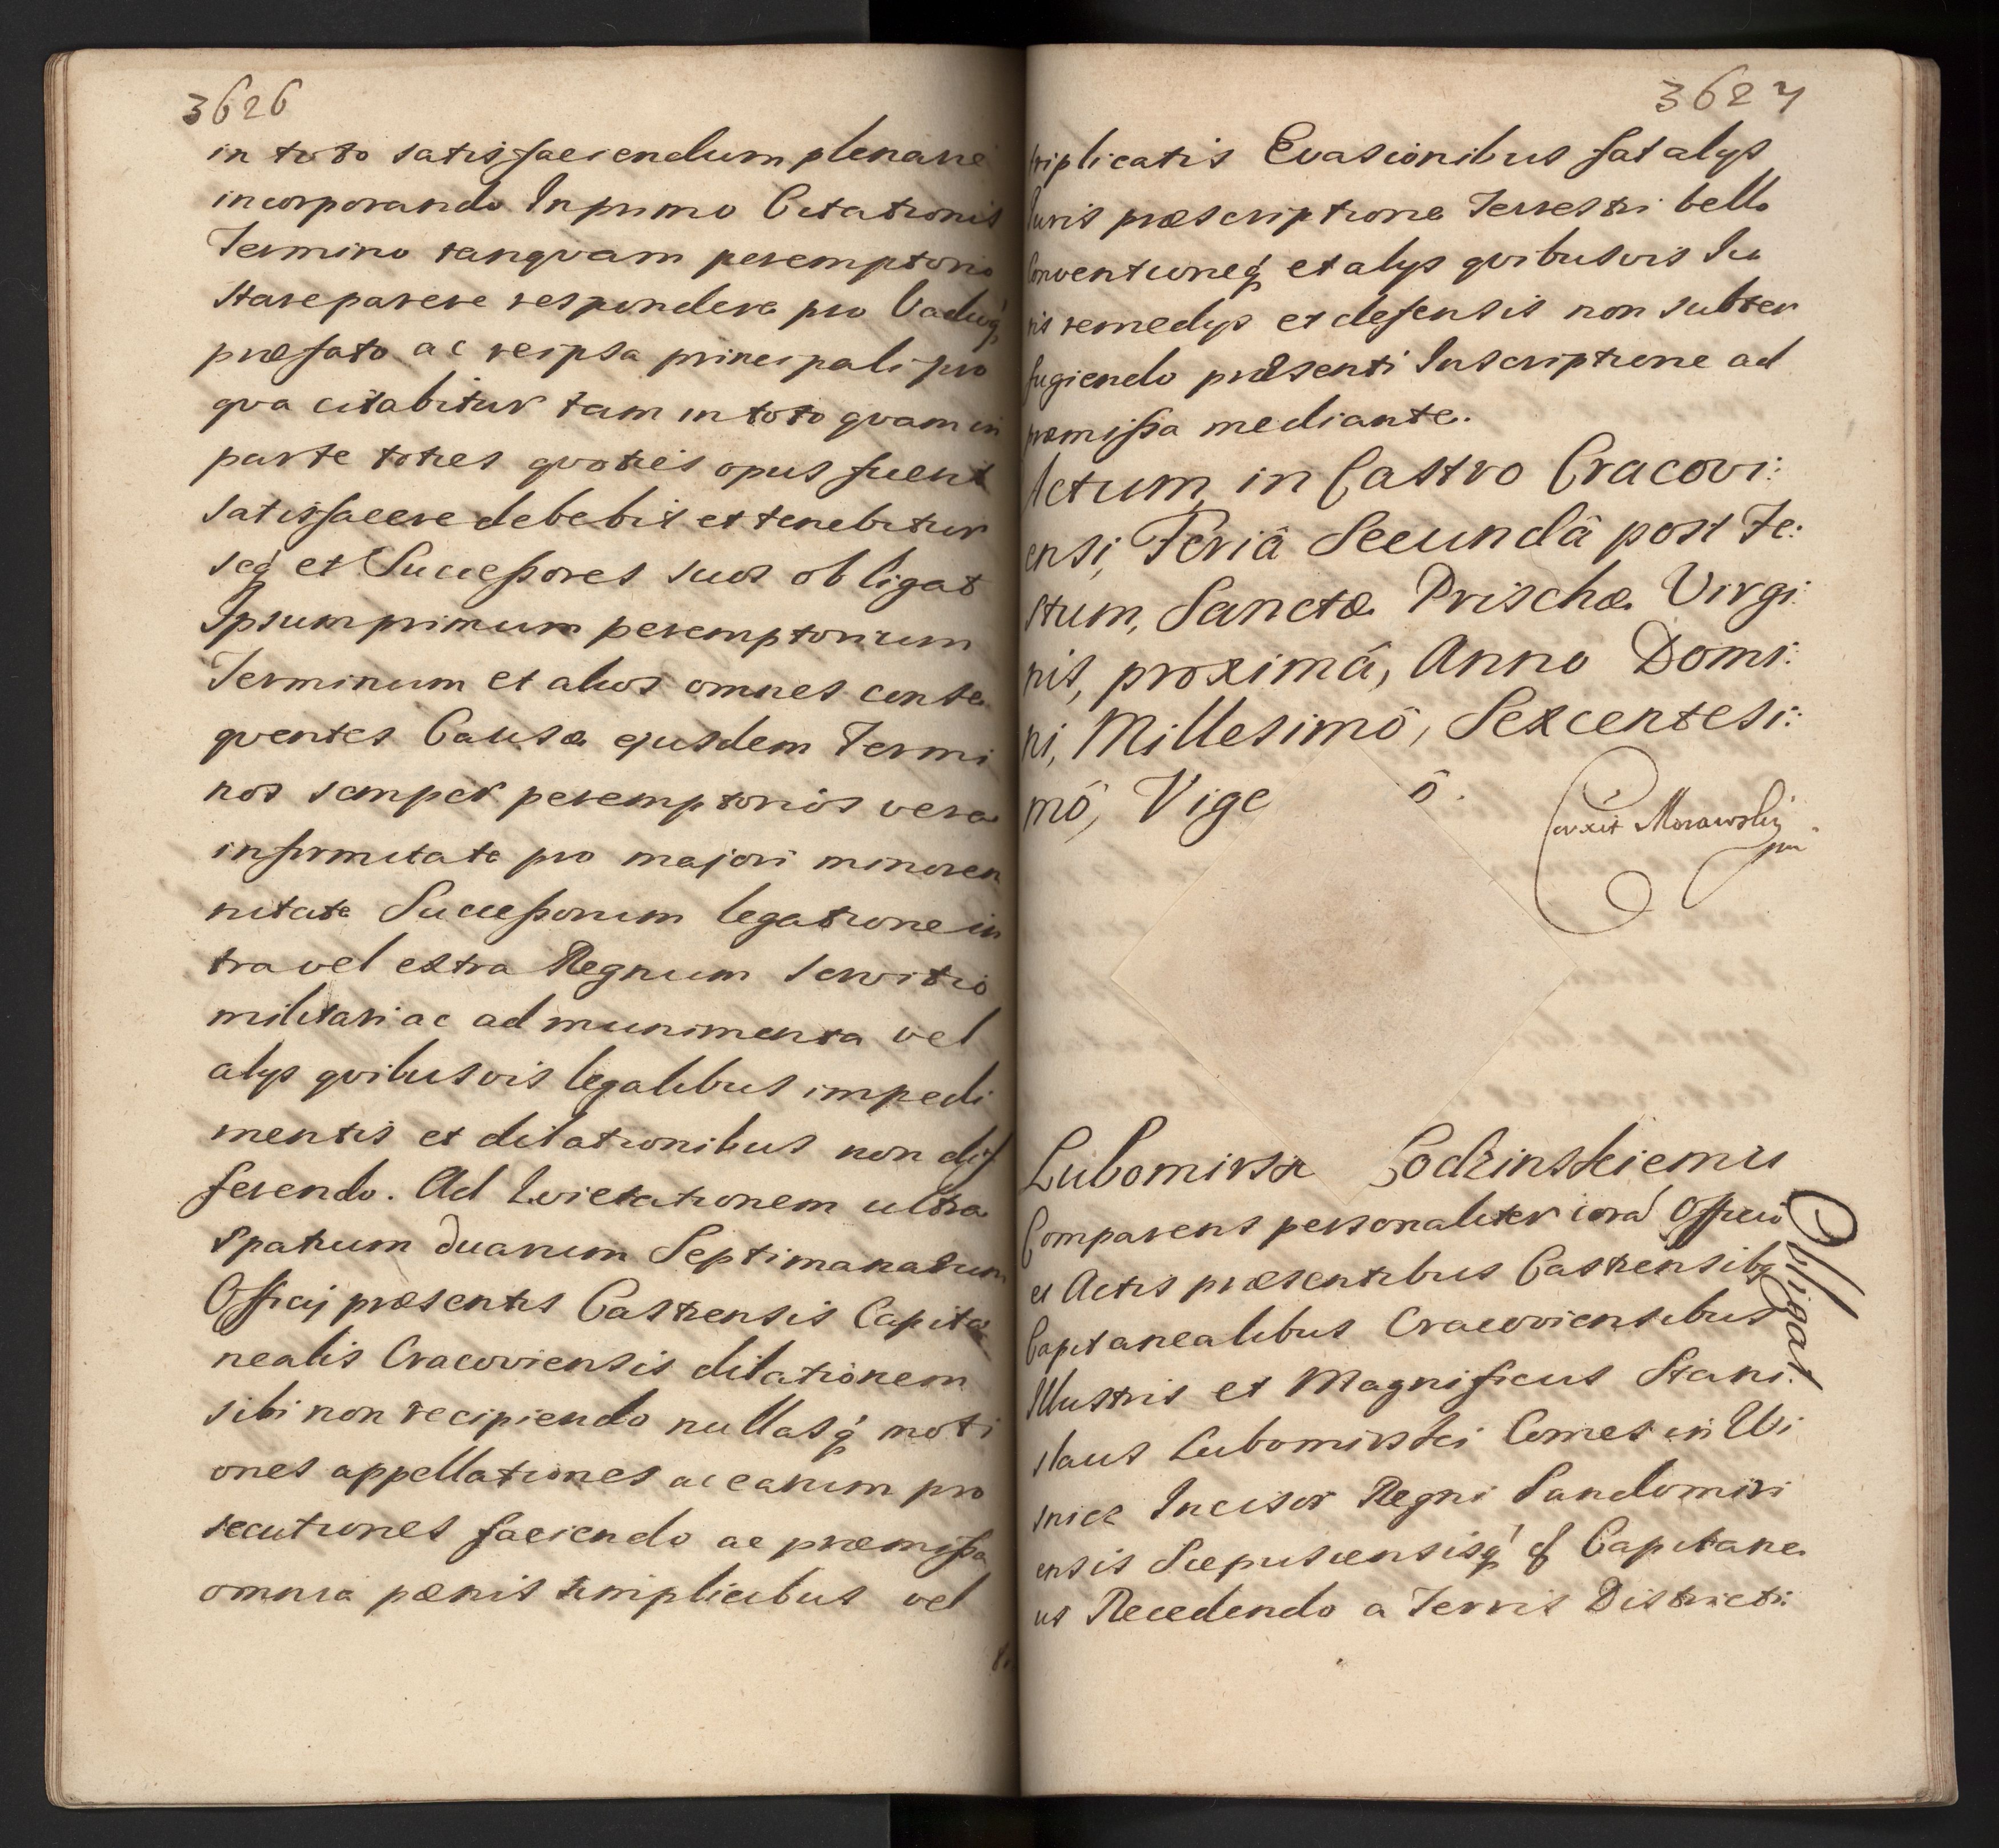 3626
in toto satisfaciendum plenarie
incorporando In primo Citationis
Termino tanquam peremptorio
stare parere respondere pro Vadiisq́
præfato ac reipsa principali pro
qva citabitur tam in toto qvam in
parte toties qvoties opus fuerit
satisfacere debebit et tenebitur
seq́ et Sucessores suos obligat
Ipsum primum peremptorium
Terminum et alios omnes conse
qventes Causæ ejusdem Termi
nos semper peremptorios vera
infirmitate pro majori minoren
nitate Sucessorum legatione in
tra vel extra Regnum servitio
militari ac ad munimenta vel
alys qvibusvis legalibus impedi
mentis et dilationibus non dif
ferendo. Ad Lvictationem ultra
spatium duarum Septimanarum
Officij præsentis Castrensis Capita
nealis Cracoviensis dilationem
sibi non recipiendo nullasq́ moti
ones appellationes ac earum pro
secutiones faciendo ac præmissa
omnia pœnis simplicibus vel
3627
triplicatis Evasionibus fatalys
Iuris præscriptione Terrestri bello
Conventioneq́ et alys qvibusvis Iu
ris remedys et defensis non subter
fugiendo præsenti Inscriptione ad
præmissa mediante.
Actum, in Castro Cracovi:
ensi, Feriâ Secundâ post Fe:
stum, Sanctæ Prischæ Virgi:
nis, proximâ, Anno Domi:
ni, Millesimô, Sexcentesi:
mô, Vige ô.
Coxit Morawskij
mp
Lubomirski Łodzinskiemu
Comparens personaliter corā Officio
et Actis præsentibus Castrensibq
Capitanealibus Cracoviensibus
Obligat
Illustris et Magnificus Stani:
slaus Lubomirski Comes in Wi
snicz Incisor Regni Sandomiri
ensis Scepusiensisq́ & Capitane
us Recedendo a Terris Districti: